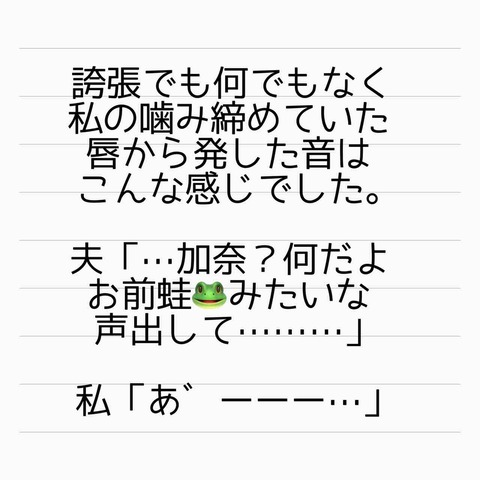 誇張でも何でもなく
私の噛み締めていた
唇から発した音は
こんな感じでした。
夫「…加奈？何だよ
お前蛙🐸みたいな
声出して………」
私「あ゛ーーー…」